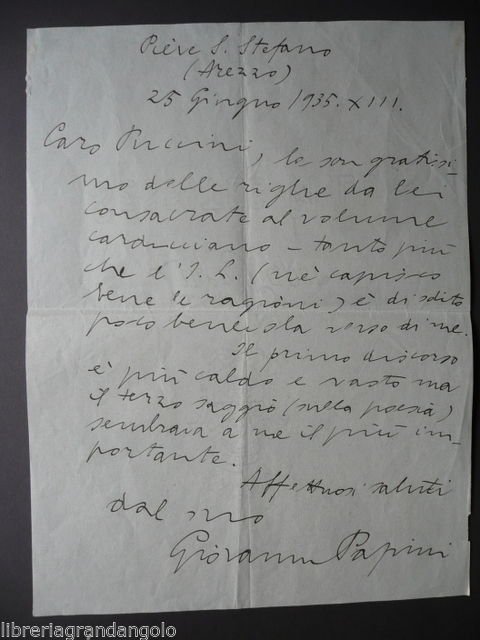 Pieve S. Stefano
(Arezzo)
25 Giugno 1935. XIII.
Caro Puccini, le son gratissi-
mo delle righe da lei
consacrate al volume
carducciano - tanto più
che l'I. L. (nè capisco
bene le ragioni) è di solito
poco benevola verso di me.
Il primo discorso
è più caldo e vasto ma
il terzo saggio (sulla poesia)
sembrava a me il più im-
portante.
Affettuosi saluti
dal suo
Giovanni Papini
libreriagrandangolo